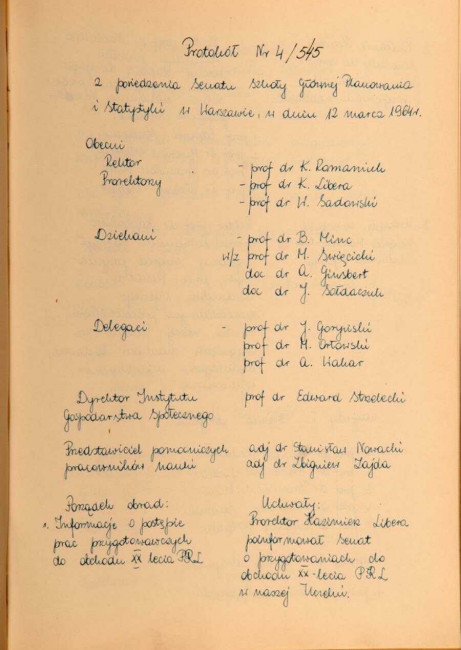 Protokół Nr 4/545
z posiedzenia Senatu Szkoły Głównej Planowania
i Statystyki w Warszawie, w dniu 12 marca 1964r.
Obecni
Rektor - prof dr K. Romaniuk
Prorektorzy - prof dr K. Libera
- prof dr W. Sadowski
Dziekani - prof dr B. Minc
w/z prof dr M. Święcicki
doc dr A. Ginsbert
doc dr J. Sołdaczuk
Delegaci - prof dr J. Goryński
prof dr M. Orłowski
prof dr A. Wakar
Dyrektor Instytutu prof dr Edward Strzelecki
Gospodarstwa Społecznego
Przedstawiciel pomocniczych adj dr Stanisław Nowacki
pracowników nauki adj dr Zbigniew Zajda
Porządek obrad:
1. Informacje o postępie
prac przygotowawczych
do obchodu XX-lecia PRL
Uchwały:
Prorektor Kazimierz Libera
poinformował Senat
o przygotowaniach do
obchodu XX-lecia PRL
w naszej Uczelni.